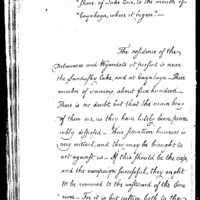 shore of Lake Erie, to the mouth of
Cayahoga, where it began."
The residence of the
Delawares and Wyandots at present is near
the Sandusky lake, and at Cayahoga. Their
number of warriors, about five hundred.
There is no doubt but that the main body
of them are, as they have lately been, peace-
ably disposed. This situation however is
very critical, and they may be brought to
act against us. If this should be the case
and the campaign successful, they ought
to be removed to the westward of the
river. For it is but justice both to the